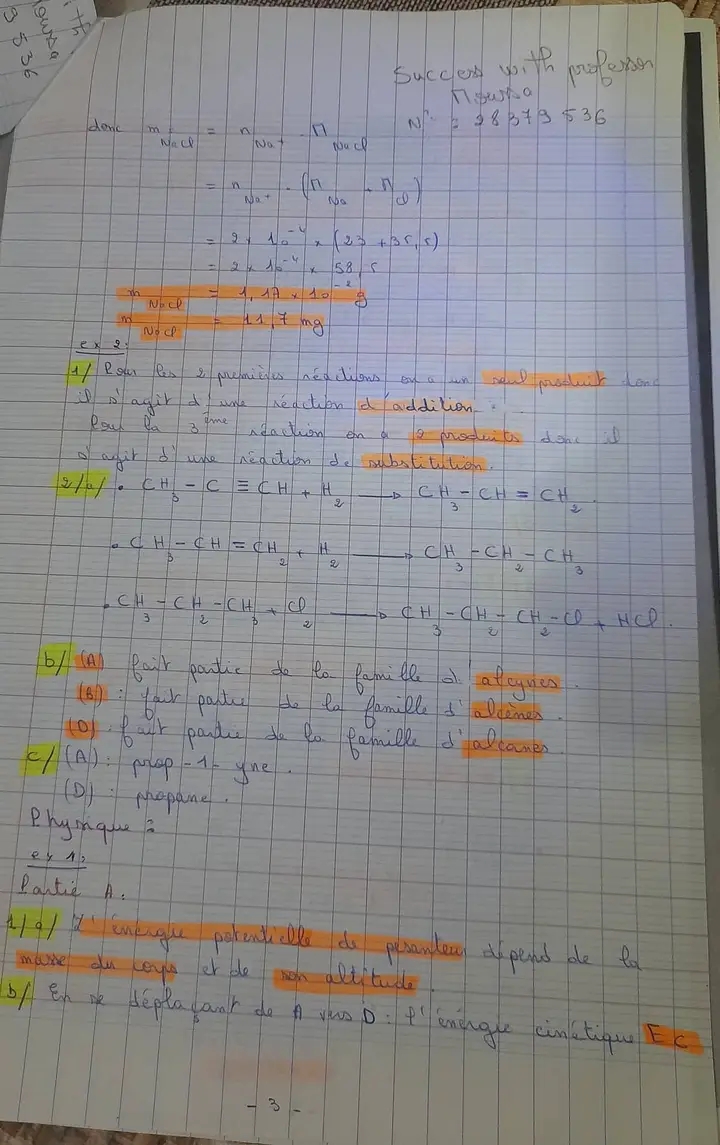 Success with professor
Moussa
N° : 28379536
donc m NaCl = n Na+ . M NaCl
= n Na+ . (M Na + M Cl)
= 2 × 10⁻⁴ × (23 + 35,5)
= 2 × 10⁻⁴ × 58,5
m NaCl = 1,17 × 10⁻² g
m NaCl = 11,7 mg
ex 2:
1/ Pour les 2 premières réactions on a un seul produit donc
il s'agit d'une réaction d'addition.
Pour la 3ème réaction on a 2 produits donc il
s'agit d'une réaction de substitution.
2/a/ . CH₃ - C ≡ CH + H₂ ⟶ CH₃ - CH = CH₂.
. CH₃ - CH = CH₂ + H₂ ⟶ CH₃ - CH₂ - CH₃
. CH₃ - CH₂ - CH₃ + Cl₂ ⟶ CH₃ - CH₂ - CH₂ - Cl + HCl.
b/ (A) fait partie de la famille d'alcynes.
(B) : fait partie de la famille d'alcènes.
(D) fait partie de la famille d'alcanes.
c/ (A) : prop-1-yne.
(D) : propane.
Physique :
ex 1:
Partie A:
1/a/ L'énergie potentielle de pesanteur dépend de la
masse du corps et de son altitude.
b/ En se déplaçant de A vers D : l'énergie cinétique Ec
- 3 -